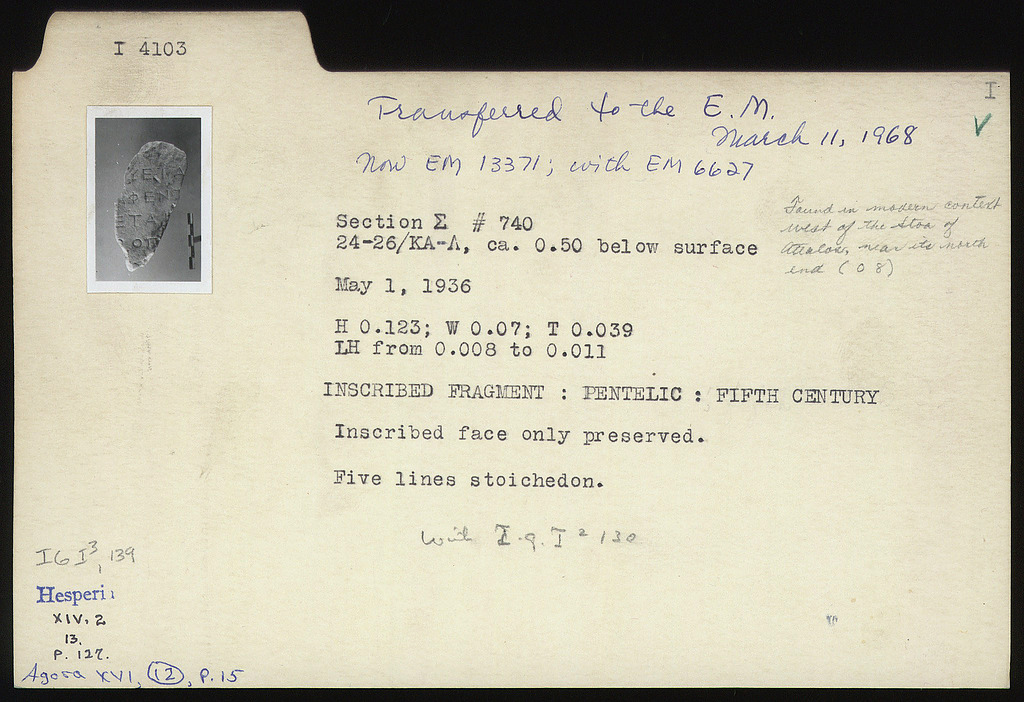 I 4103
I
Transferred to the E.M.
March 11, 1968
Now EM 13371; with EM 6627
Section Σ # 740
24-26/KA-Λ, ca. 0.50 below surface
Found in modern context
west of the Stoa of
Attalos, near its north
end (O 8)
May 1, 1936
H 0.123; W 0.07; T 0.039
LH from 0.008 to 0.011
INSCRIBED FRAGMENT : PENTELIC : FIFTH CENTURY
Inscribed face only preserved.
Five lines stoichedon.
with I.G. I² 130
IG I³, 139
Hesperia
XIV, 2
13.
P. 127.
Agora XVI, 12, P. 15